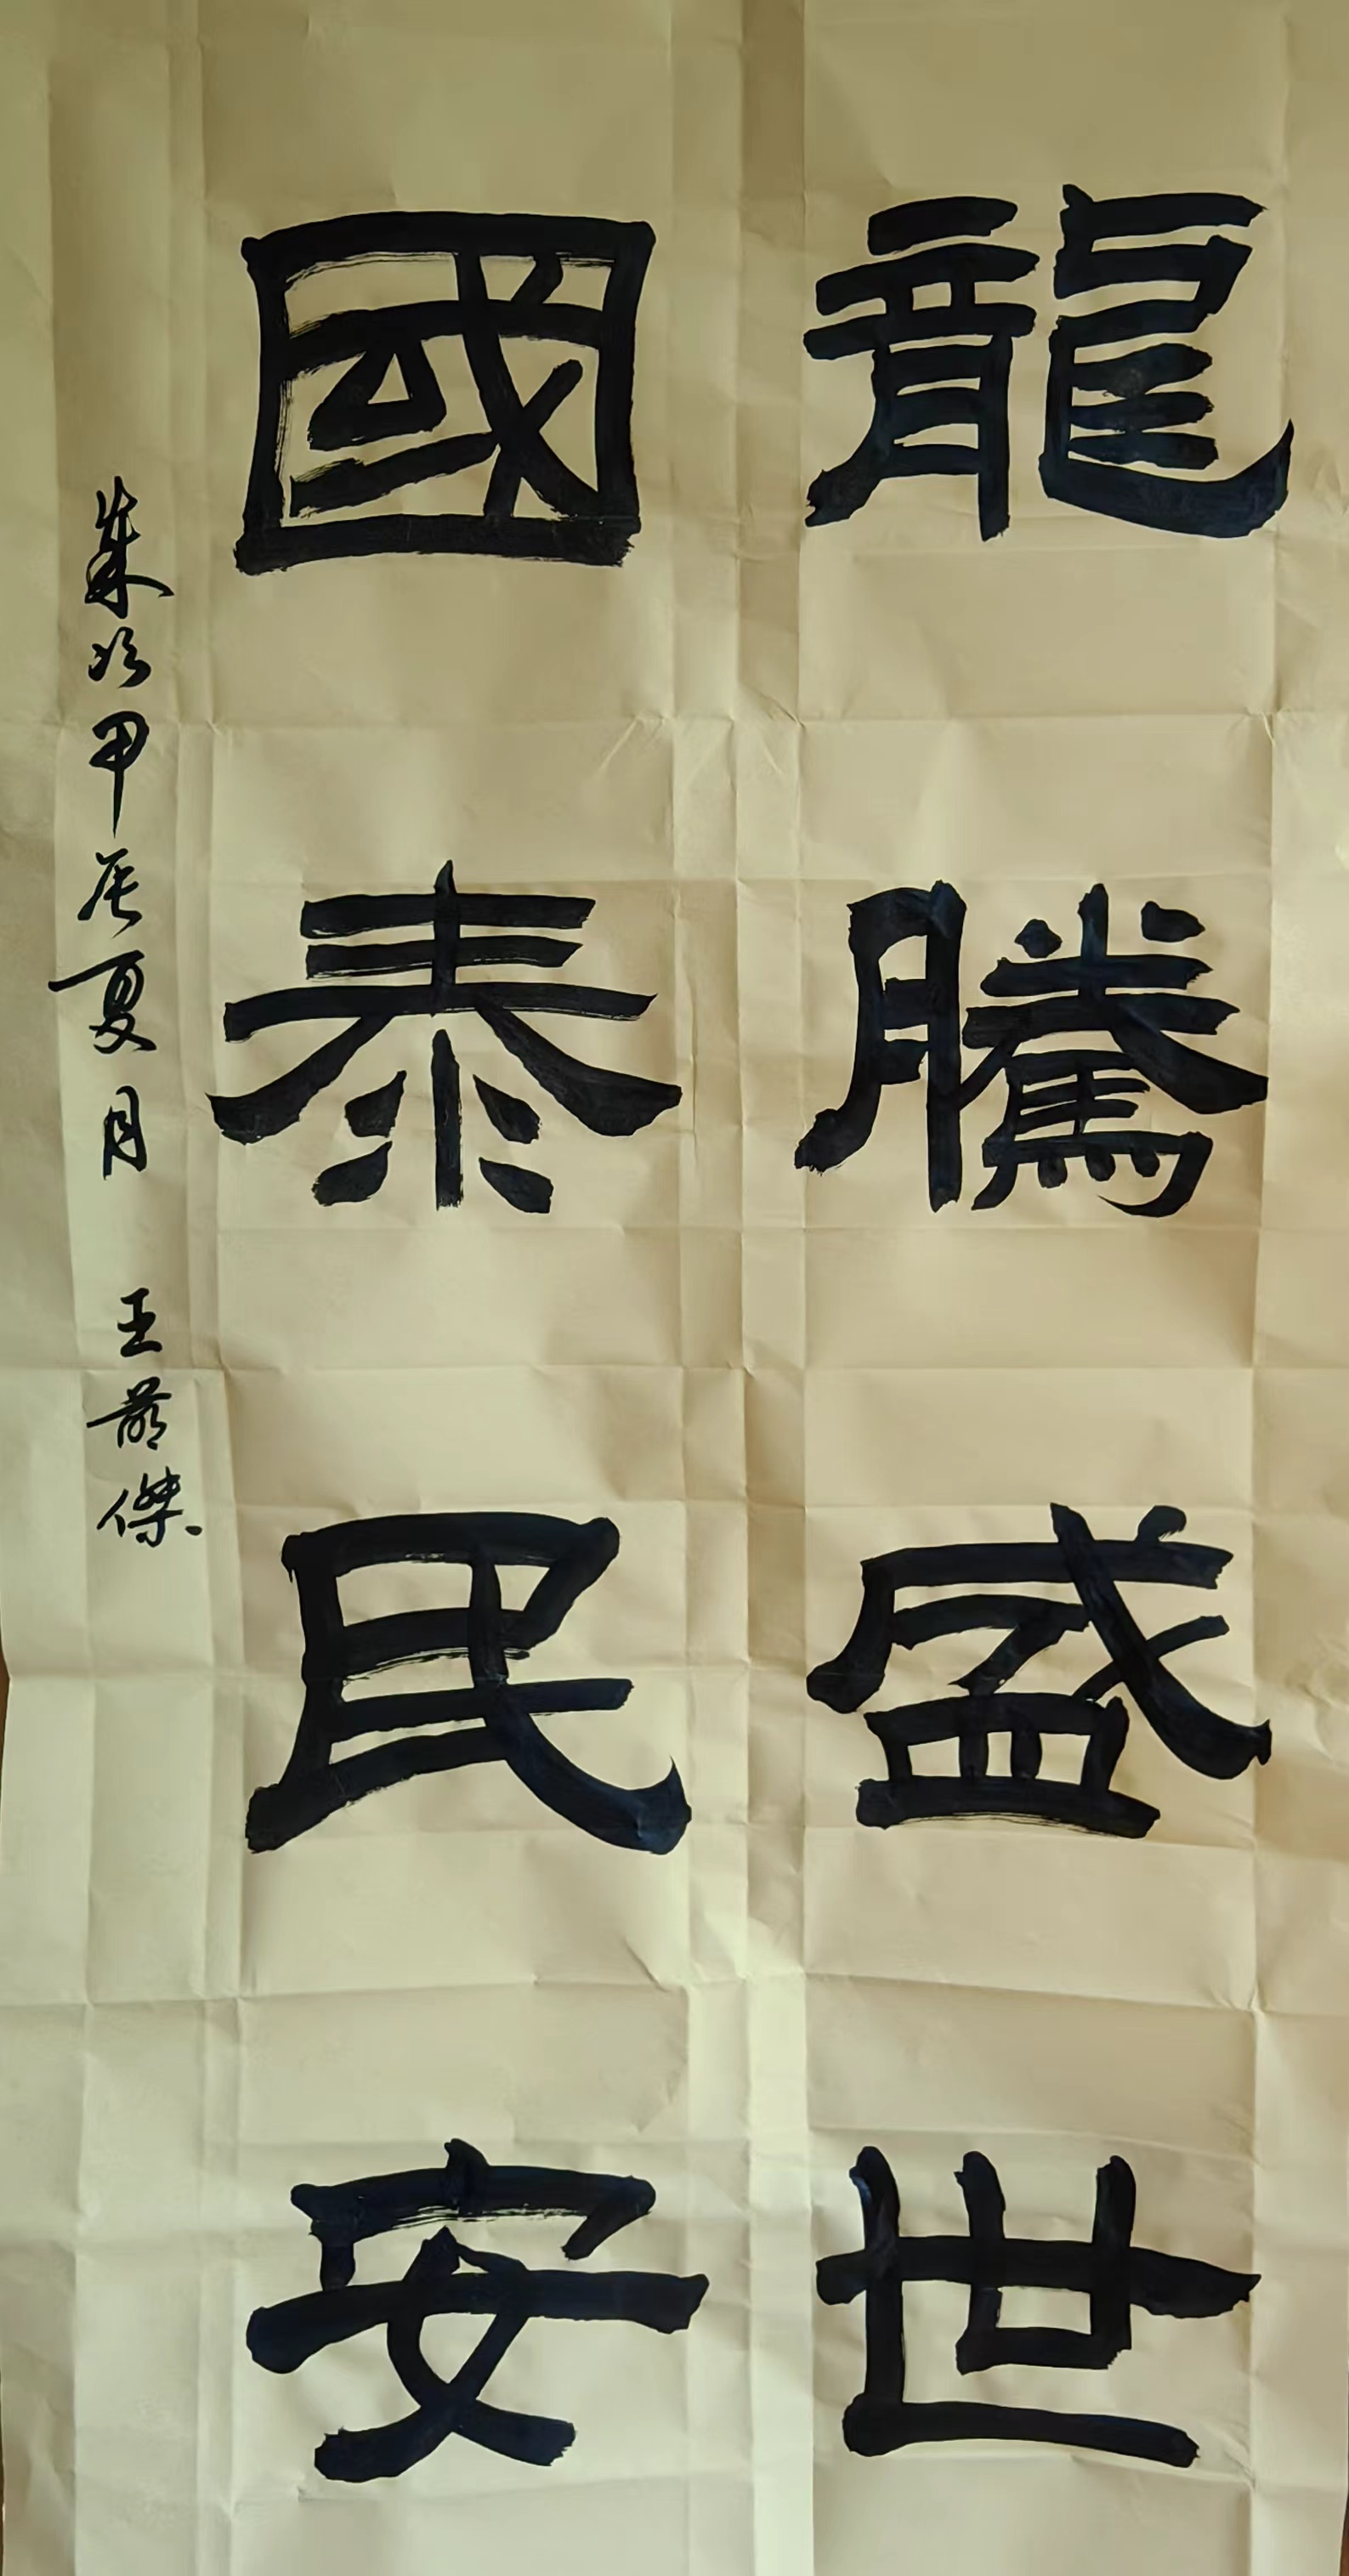 龍騰盛世
國泰民安
歲次甲辰夏月 王 傑